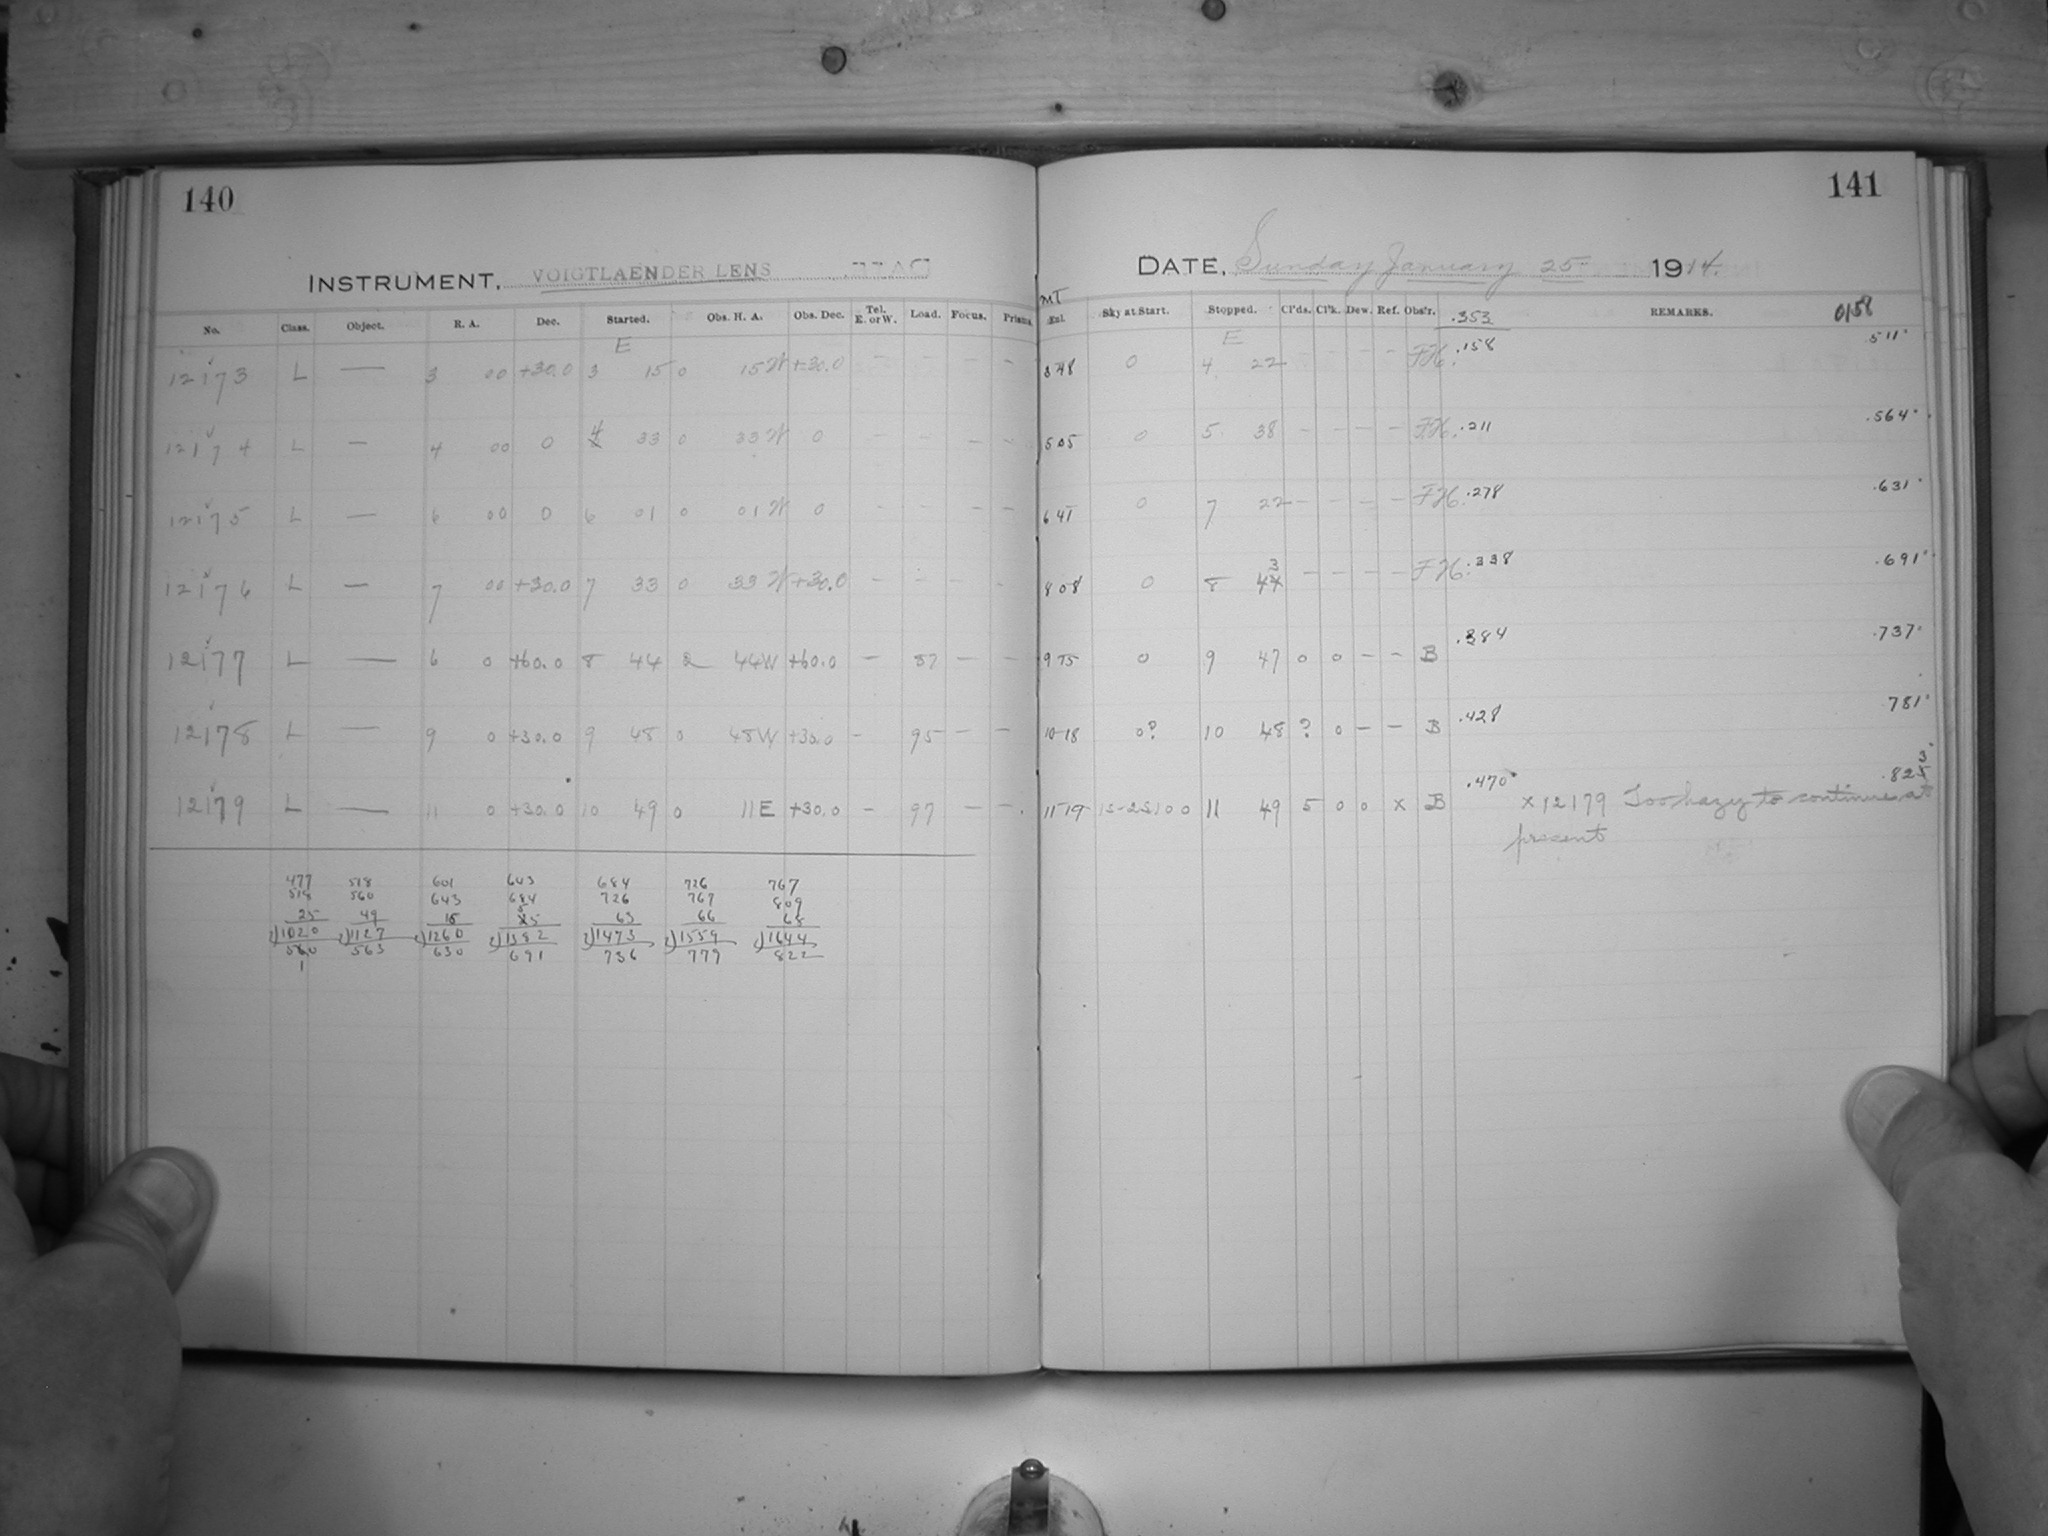 140
INSTRUMENT, VOIGTLAENDER LENS
No. Class. Object. R. A. Dec. Started. Obs. H. A. Obs. Dec. Tel. E. or W. Load. Focus. Prisms.
E
12173 L — 3 00 +30.0 3 15 0 15 W +30.0 — — — —
12174 L — 4 00 0 4 33 0 33 W 0 — — — —
12175 L — 6 00 0 6 01 0 01 W 0 — — — —
12176 L — 7 00 +30.0 7 33 0 33 W +30.0 — — — —
12177 L — 6 0 +60.0 8 44 2 44W +60.0 — 87 — —
12178 L — 9 0 +30.0 9 48 0 48W +30.0 — 95 — —
12179 L — 11 0 +30.0 10 49 0 11E +30.0 — 97 — —
477 518 601 643 684 726 767
518 560 643 684 726 767 809
25 49 63 66 68
2)1020 2)1127 2)1260 2)1382 2)1473 2)1559 2)1644
563 630 691 736 779 822
1
141
DATE, Sunday January 25 1914.
MT
Exl. Sky at Start. Stopped. Cl'ds. Cl'k. Dew. Ref. Obs'r. .353 REMARKS. 0158
E
3 48 0 4 22 — — — — FH. .158 .511
5 05 0 5 38 — — — — FH. .211 .564
6 41 0 7 22 — — — — FH. .278 .631
8 08 0 8 43 — — — — FH. .338 .691
9 15 0 9 47 0 0 — — B .384 .737
10 18 0? 10 48 ? 0 — — B .428 781
11 19 11 49 5 0 0 x B .470 .823
x 12179 Too hazy to continue at
present